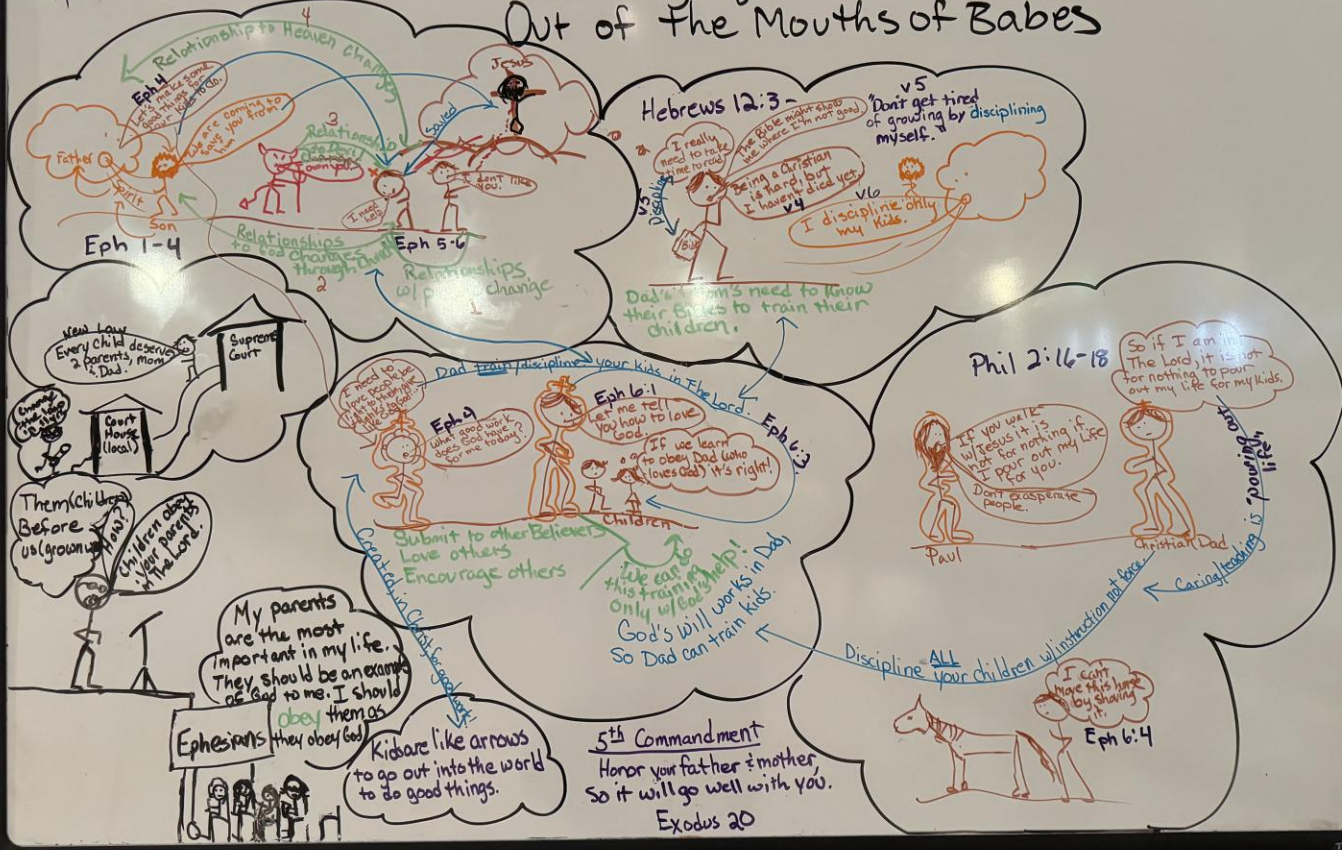 Out of The Mouths of Babes
4
Relationship to Heaven changes
Eph 4
Let's make some
good things for
our kids to do.
We are coming to
save you from
him
Father
Spirit
Son
Eph 1-4
3
Relationship
to Devil
changes
I own you.
Jesus
Saved
I need
help
I don't like
you.
Relationships
to God changes
through Christ
2
Eph 5-6
Relationships
w/ change
1
Hebrews 12:3-
v5
"Don't get tired
of growing by disciplining
myself."
I really
need to take
time to read
The Bible might show
me where I'm not good.
Being a Christian
is hard, but
I haven't died yet.
v4
v5
Discipline
v6
I discipline only
my kids.
Dad's & Mom's need to know
their Bibles to train their
children.
New Law
Every child deserves
2 parents, mom
& Dad.
Supreme
Court
Change
the laws
Court
House
(local)
Them (children)
Before
us (grownups)
How?
Children obey
your parents
in The Lord.
My parents
are the most
important in my life.
They should be an example
of God to me. I should
obey them as
they obey God
Ephesians
Dad train/discipline your kids in The Lord.
Eph 6:3
I need to
love people, be
Eph 4
What good work
does God have
for me today?
Eph 6:1
Let me tell
you how to love
God.
If we learn
to obey Dad (who
loves God) it's right!
Children
Submit to other Believers
Love others
Encourage others
We can do
this training
only w/ God's help!
God's will works in Dad,
So Dad can train kids.
Created in Christ for good work!
Kids are like arrows
to go out into the world
to do good things.
5th Commandment
Honor your father & mother,
So it will go well with you.
Exodus 20
Phil 2:16-18
So if I am in
The Lord, it is not
for nothing to pour
out my life for my kids.
If you walk
w/ Jesus it is
not for nothing if
I pour out my life
for you.
Don't exasperate
people.
Paul
Christian Dad
Caring/teaching is "pouring out life"
Discipline ALL your children w/ instruction not force.
I can't
move this horse
by shoving
it.
Eph 6:4